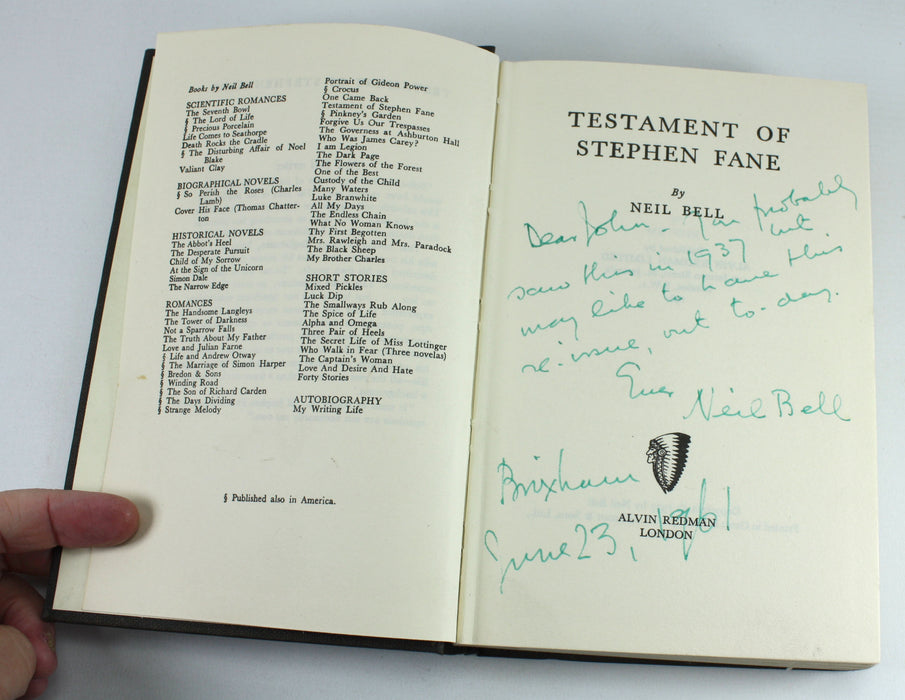 Books by Neil Bell
SCIENTIFIC ROMANCES
The Seventh Bowl
§ The Lord of Life
§ Precious Porcelain
Life Comes to Seathorpe
Death Rocks the Cradle
§ The Disturbing Affair of Noel
Blake
Valiant Clay
BIOGRAPHICAL NOVELS
§ So Perish the Roses (Charles
Lamb)
Cover His Face (Thomas Chatter-
ton)
HISTORICAL NOVELS
The Abbot's Heel
The Desperate Pursuit
Child of My Sorrow
At the Sign of the Unicorn
Simon Dale
The Narrow Edge
ROMANCES
The Handsome Langleys
The Tower of Darkness
Not a Sparrow Falls
The Truth About My Father
Love and Julian Farne
§ Life and Andrew Otway
§ The Marriage of Simon Harper
§ Bredon & Sons
§ Winding Road
§ The Son of Richard Carden
§ The Days Dividing
§ Strange Melody
Portrait of Gideon Power
§ Crocus
One Came Back
Testament of Stephen Fane
§ Pinkney's Garden
Forgive Us Our Trespasses
The Governess at Ashburton Hall
Who Was James Carey?
I am Legion
The Dark Page
The Flowers of the Forest
One of the Best
Custody of the Child
Many Waters
Luke Branwhite
All My Days
The Endless Chain
What No Woman Knows
Thy First Begotten
Mrs. Rawleigh and Mrs. Paradock
The Black Sheep
My Brother Charles
SHORT STORIES
Mixed Pickles
Luck Dip
The Smallways Rub Along
The Spice of Life
Alpha and Omega
Three Pair of Heels
The Secret Life of Miss Lottinger
Who Walk in Fear (Three novelas)
The Captain's Woman
Love And Desire And Hate
Forty Stories
AUTOBIOGRAPHY
My Writing Life
§ Published also in America.
TESTAMENT OF
STEPHEN FANE
By
NEIL BELL
Dear John - You probably
saw this in 1937 but
may like to have this
re-issue, out to-day.
Ever
Neil Bell
Brixham
June 23, 1961
ALVIN REDMAN
LONDON